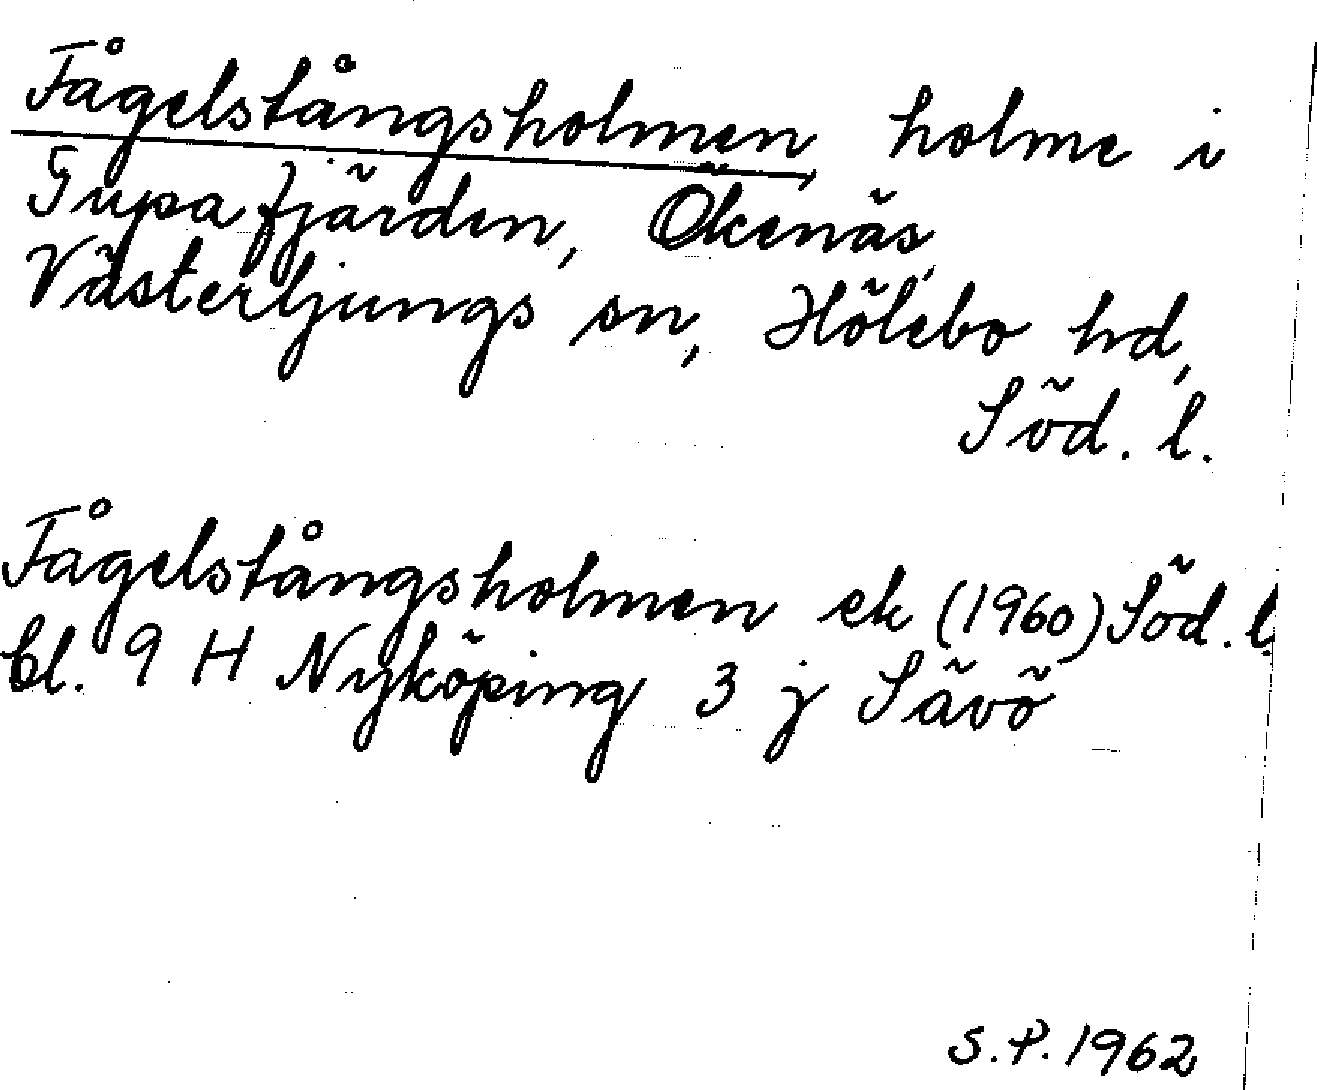 Fågelstångsholmen, holme i
Gupafjärden, Ökenäs,
Västerljungs sn, Hölebo hd,
Söd. l.
Fågelstångsholmen ek (1960) Söd. l.
bl. 9 H Nyköping 3 j Sävö
S.P. 1962